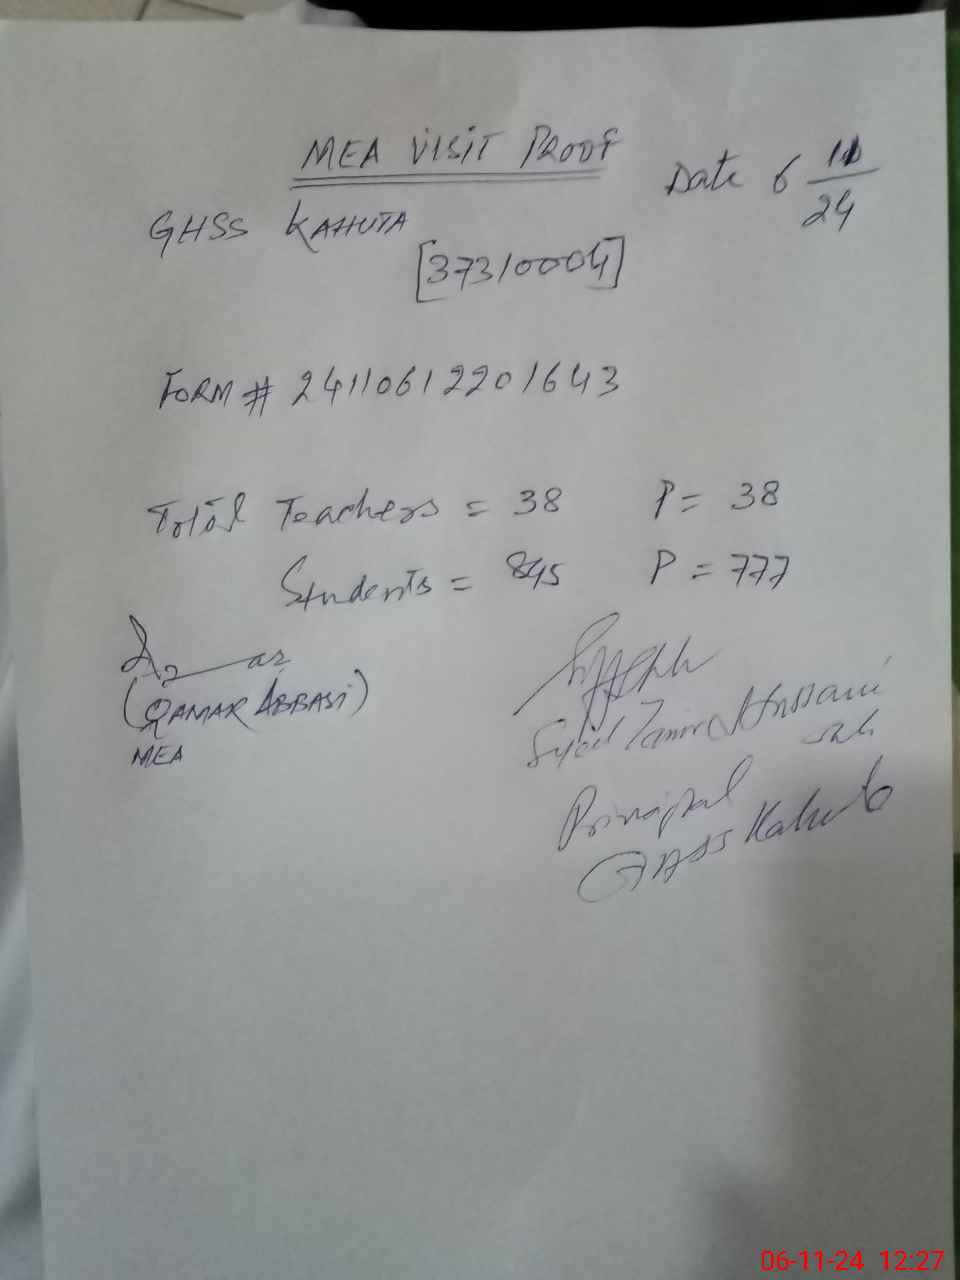 MEA VISIT PROOF
Date 6 11/24
GHSS KAHUTA
[37310004]
FORM # 24110612201643
Total Teachers = 38 P = 38
Students = 845 P = 777
(QAMAR ABBASI)
MEA
Syed Hussain
Principal
GHSS Kahuta
06-11-24 12:27